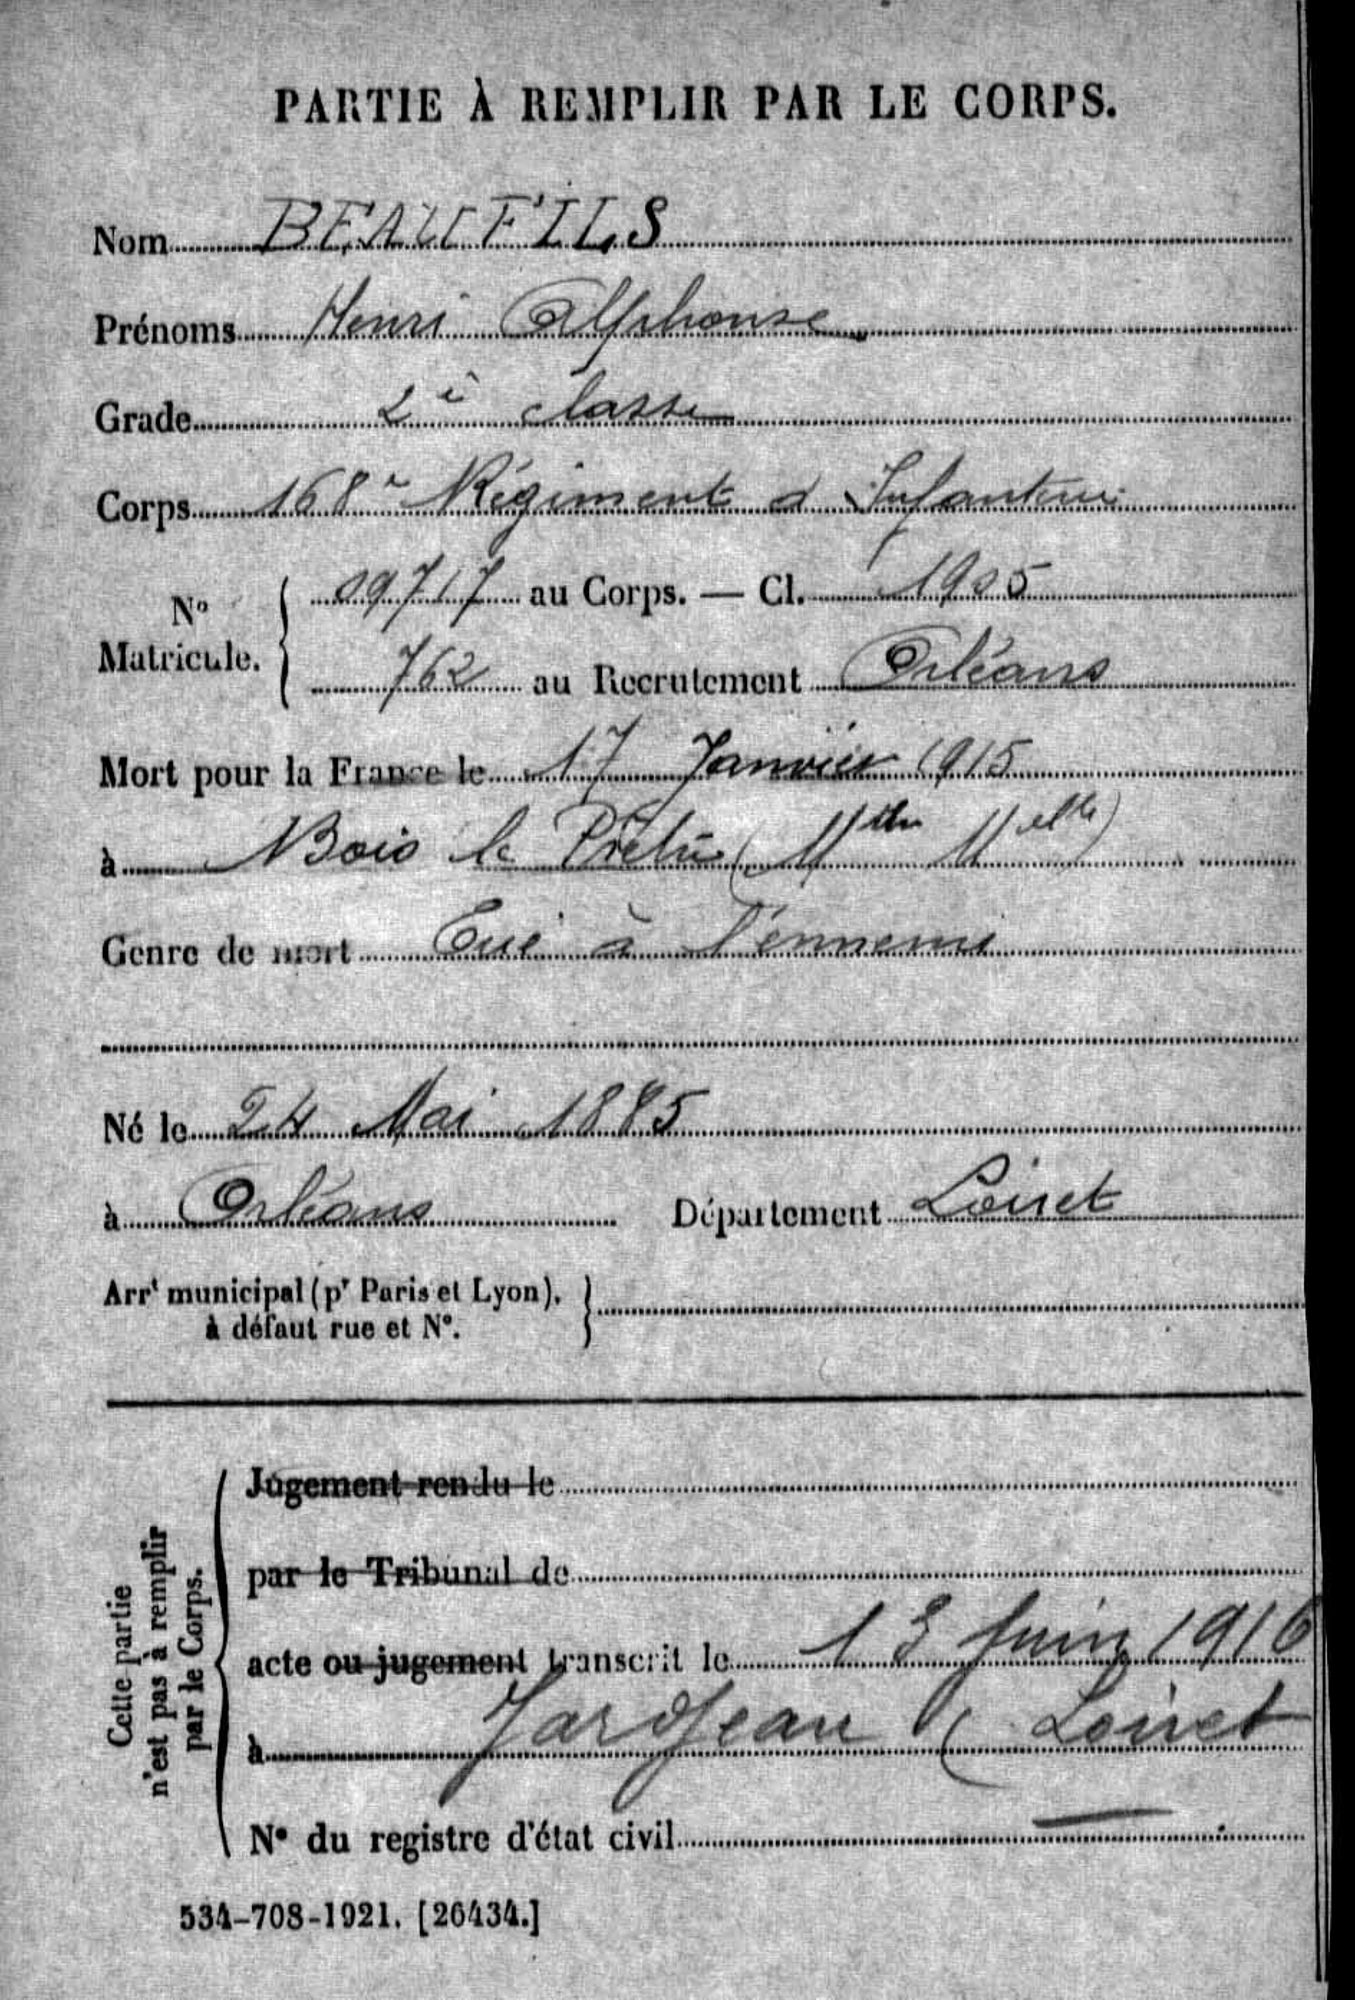 PARTIE À REMPLIR PAR LE CORPS.
Nom BEAUFILS
Prénoms Henri Alphonse
Grade 2e classe
Corps 168e Régiment d'Infanterie
No Matricule. 09717 au Corps. — Cl. 1905
762 au Recrutement Orléans
Mort pour la France le 17 Janvier 1915
à Bois le Prêtre (Mthe Melle)
Genre de mort Tué à l'ennemi
Né le 24 Mai 1885
à Orléans Département Loiret
Arrt municipal (pr Paris et Lyon),
à défaut rue et No.
Cette partie
n'est pas à remplir
par le Corps.
Jugement rendu le
par le Tribunal de
acte ou jugement transcrit le 13 Juin 1916
à Jargeau (Loiret
No du registre d'état civil —
534-708-1921. [26434.]